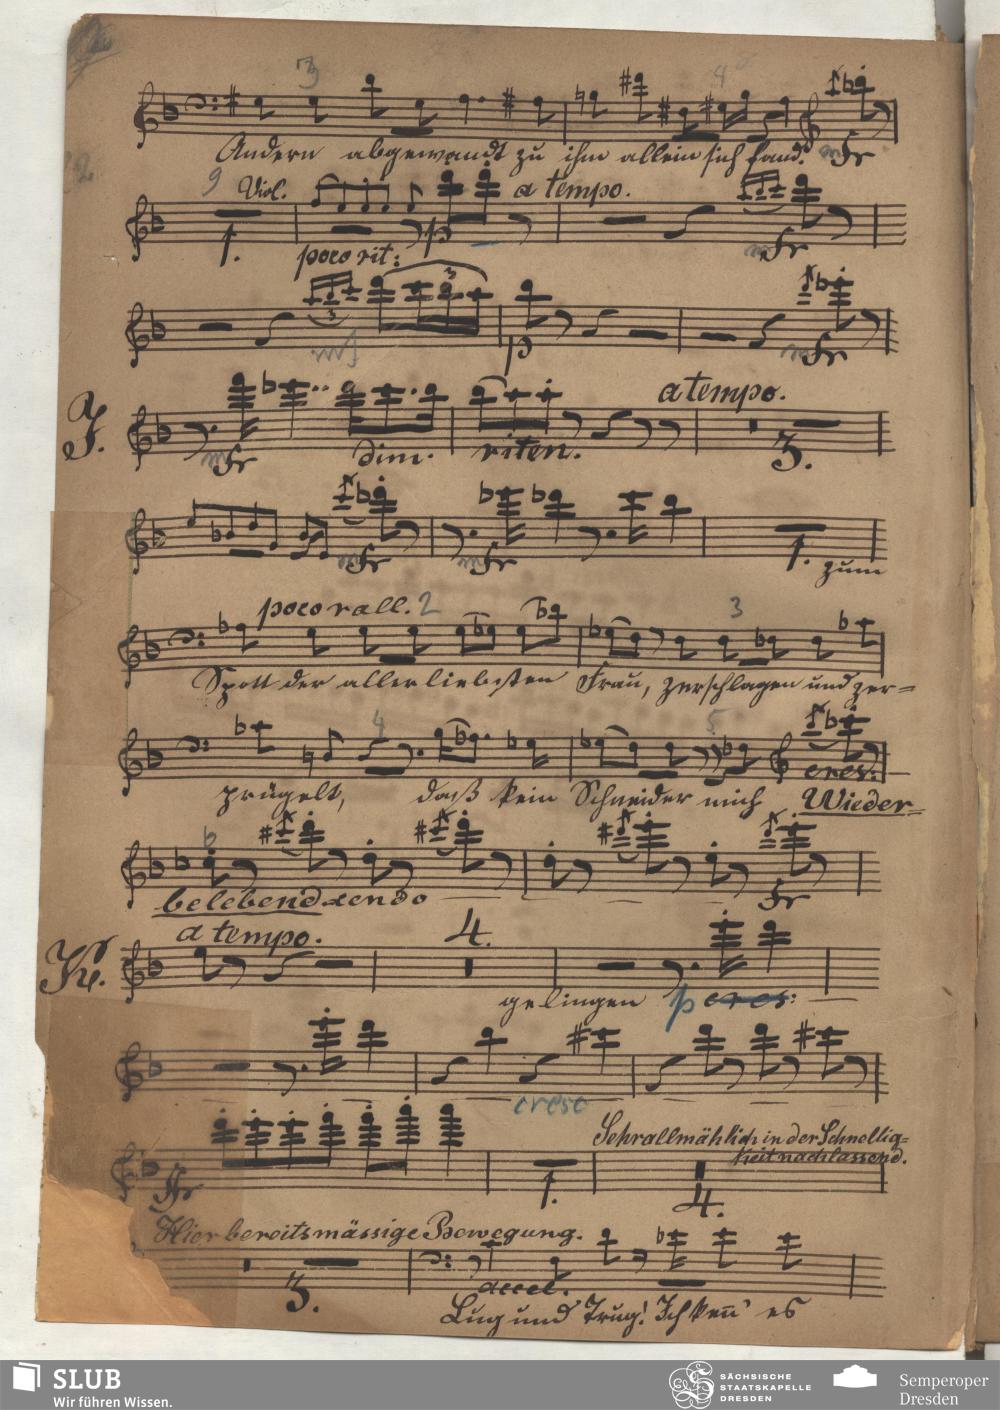 3 4
Andern abgewandt zu ihm allein sich fand. Fr
9 Viol. a tempo.
1. poco rit: p Fr
3 3
mf p Fr
J. a tempo.
Fr dim. riten. 3.
Fr Fr 1. zum
poco rall. 2 3
Spott der allerliebsten Frau, zerschlagen und zer=
4 5
prügelt, daß kein Schneider mich cres: Wieder=
6
belebend cendo Fr
K. a tempo. 4.
gelingen p cres:
cresc
Sehr allmählich in der Schnellig=
keit nachlassend.
1. 4.
Hier bereits mässige Bewegung.
3. accel.
Lug und Trug! Ich kenn' es
SLUB
Wir führen Wissen.
SÄCHSISCHE
STAATSKAPELLE
DRESDEN
Semperoper
Dresden